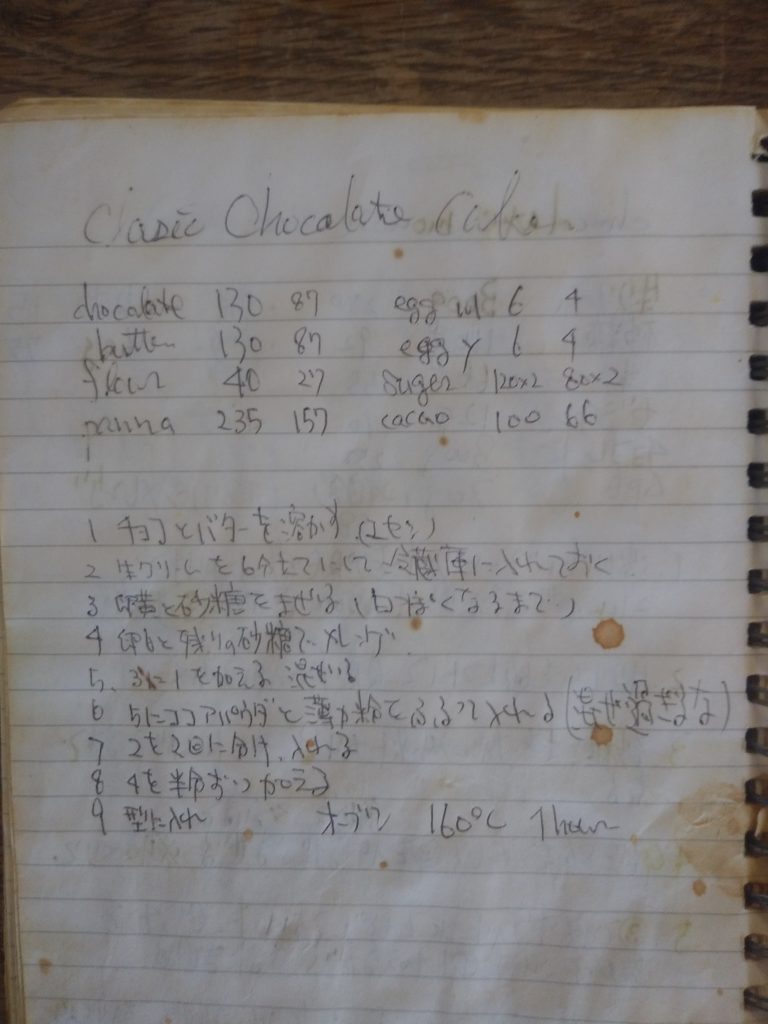 Clasic Chocolate Cake
chocolate 130 87 egg w 6 4
butter 130 87 egg y 6 4
flour 40 27 suger 120×2 80×2
panna 235 157 cacao 100 66
1 チョコとバターを溶かす (ユセン)
2 生クリームを6分立てにして 冷蔵庫に入れておく
3 卵黄と砂糖をまぜる (白っぽくなるまで)
4 卵白と残りの砂糖で メレンゲ
5. 3に1を加える 混ぜる
6 5にココアパウダと薄力粉をふるって入れる (混ぜ過ぎるな)
7 2を2回に分け、入れる
8 4を半分ずつ加える
9 型に入れ オーブン 160℃ 1hour